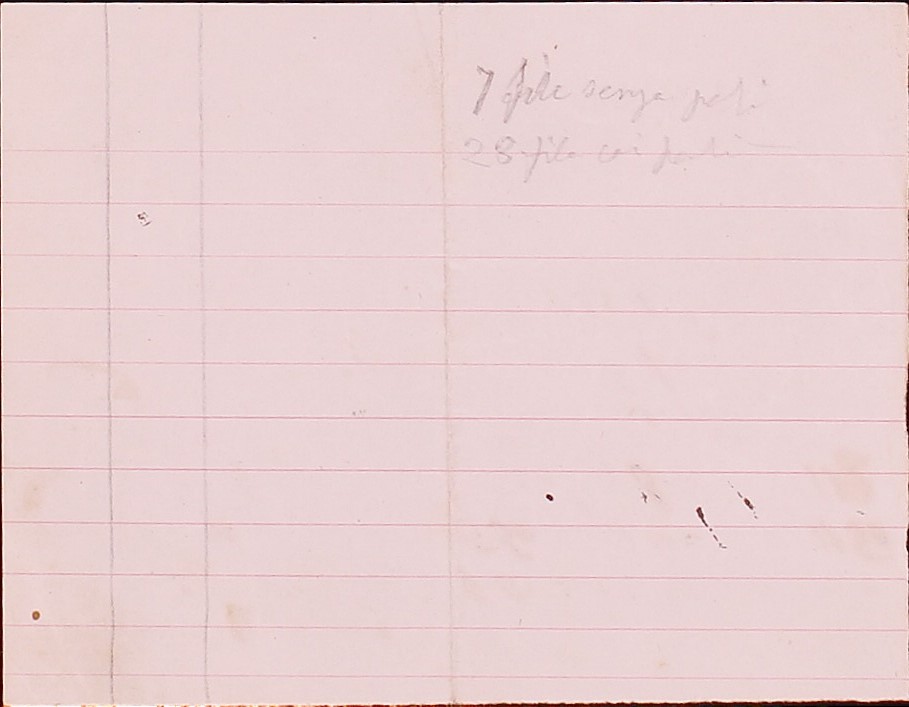 7 file senza pali
28 file coi pali